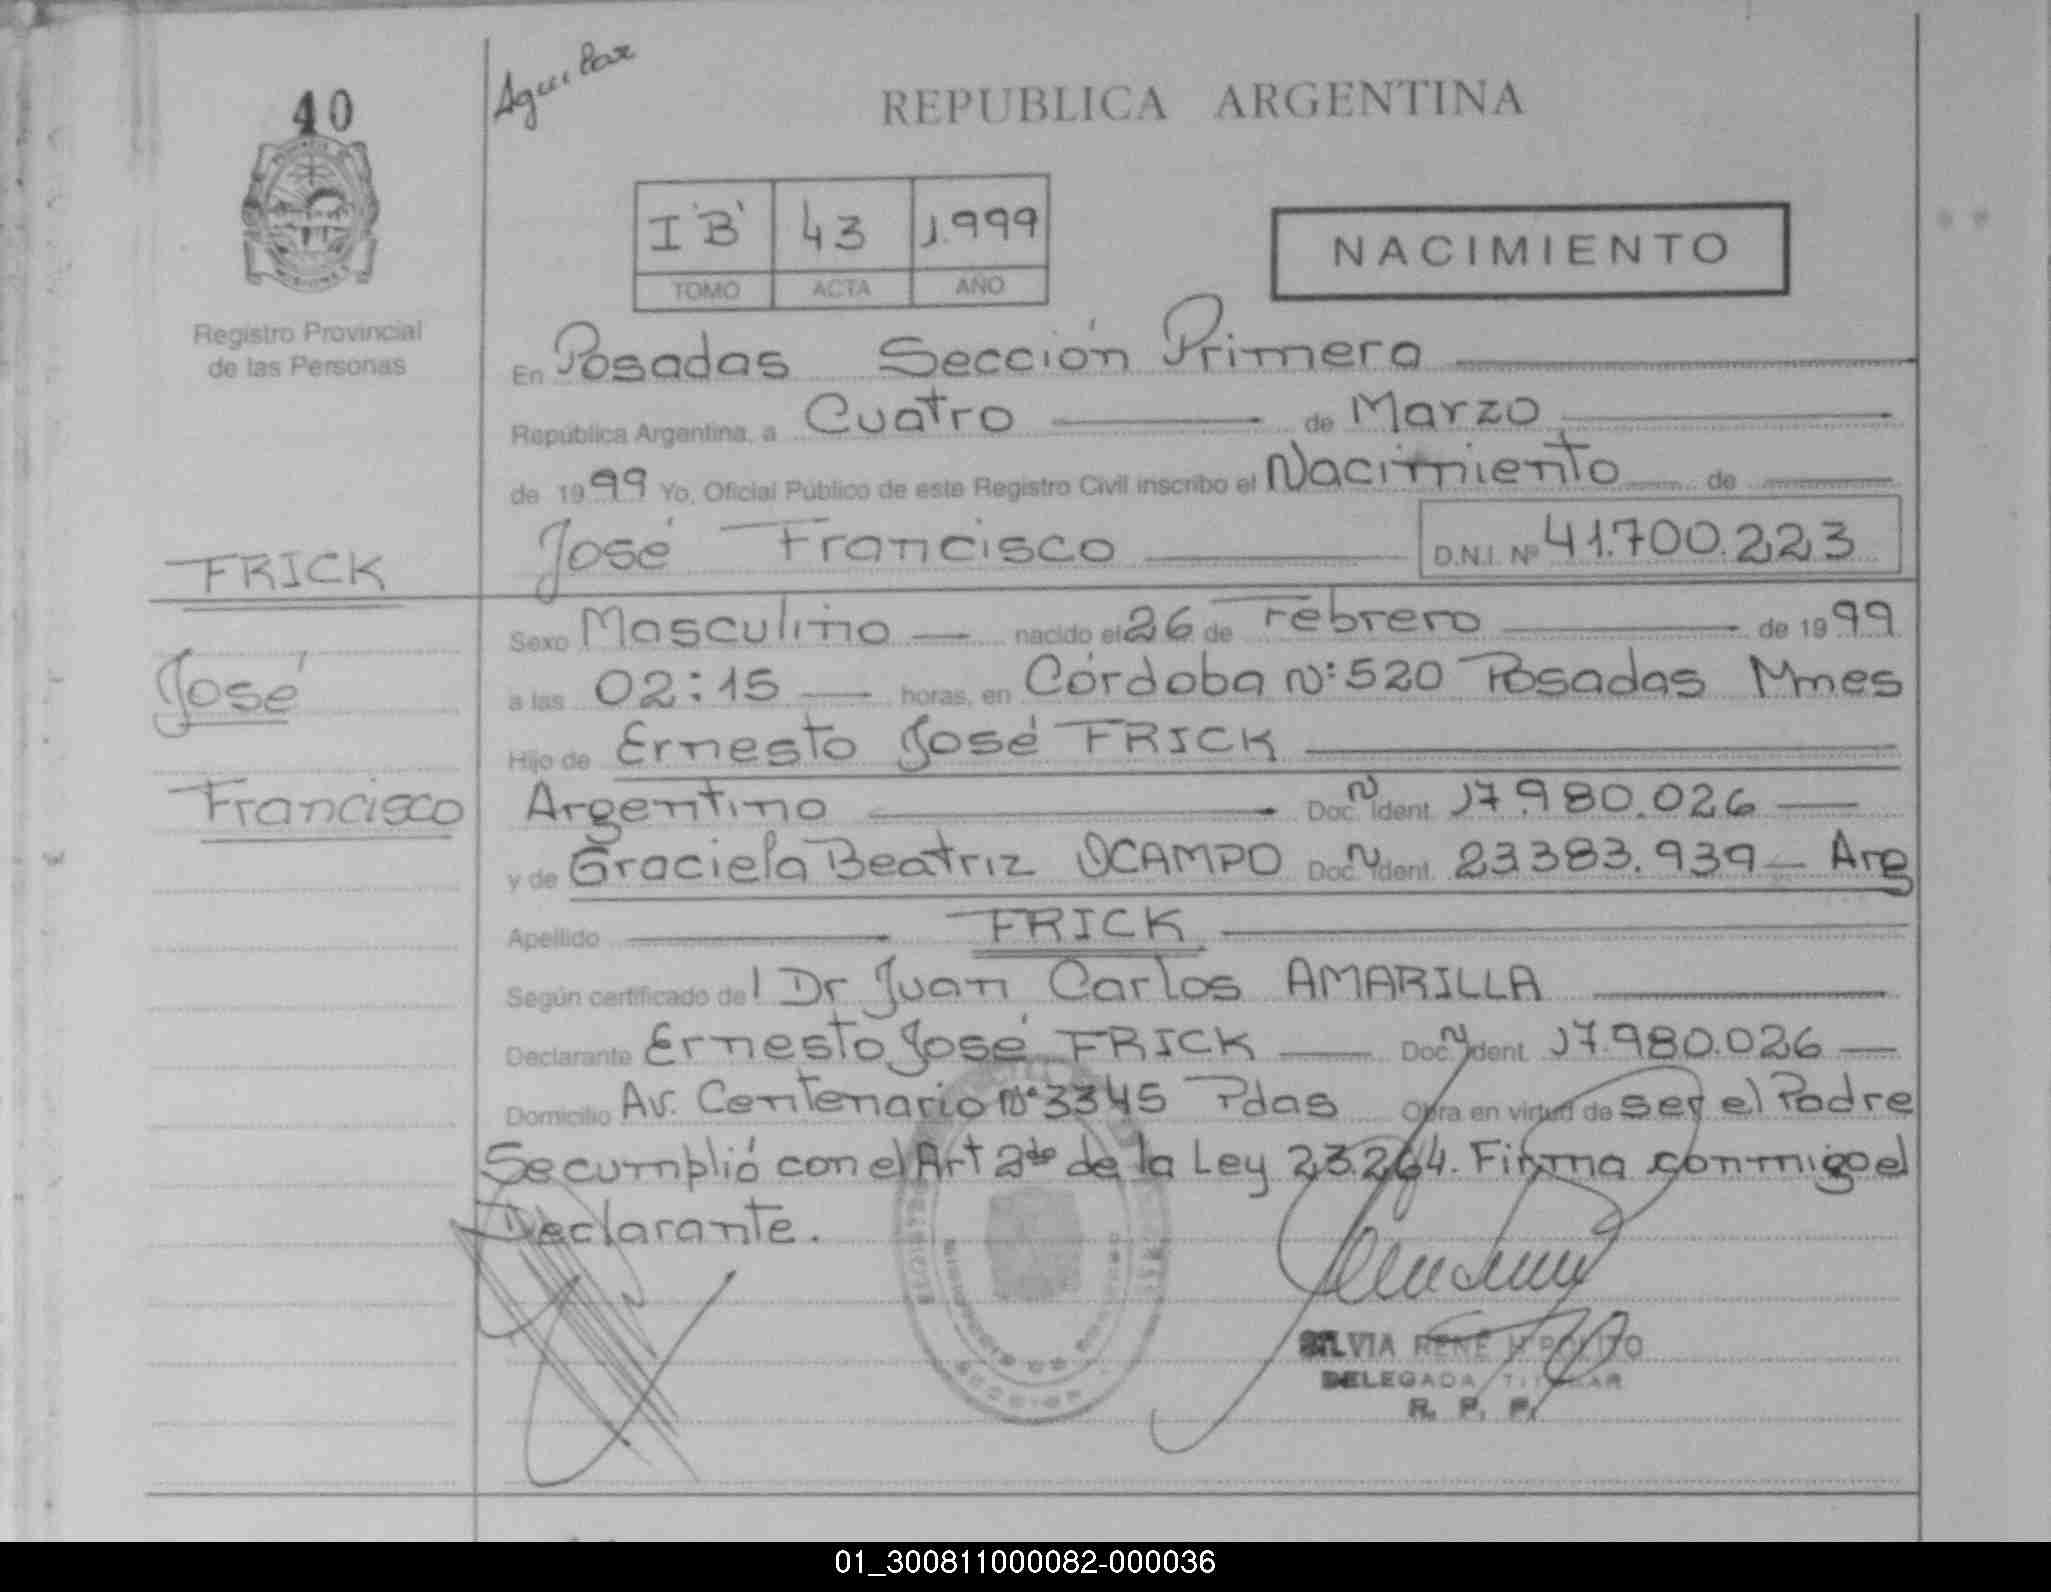 40
Aguilar
REPUBLICA ARGENTINA
I 'B' 43 1.999
TOMO ACTA AÑO
NACIMIENTO
Registro Provincial
de las Personas
En Posadas Sección Primera
República Argentina, a Cuatro de Marzo
de 1999 Yo, Oficial Público de este Registro Civil inscribo el Nacimiento de
José Francisco D.N.I. Nº 41.700.223
FRICK
José
Francisco
Sexo Masculino nacido el 26 de Febrero de 1999
a las 02:15 horas, en Córdoba Nº 520 Posadas Mnes
Hijo de Ernesto José FRICK
Argentino Doc. N Ident. 17.980.026
y de Graciela Beatriz OCAMPO Doc. N Ident. 23.383.939 Arg
Apellido FRICK
Según certificado del Dr Juan Carlos AMARILLA
Declarante Ernesto José FRICK Doc. N Ident. 17.980.026
Domicilio Av. Centenario Nº 3345 Pdas Obra en virtud de ser el Padre
Se cumplió con el Art 2do de la Ley 23.264. Firma conmigo el
Declarante.
SILVIA RENE HIPOLITO
DELEGADA TITULAR
R. P. P.
01_300811000082-000036